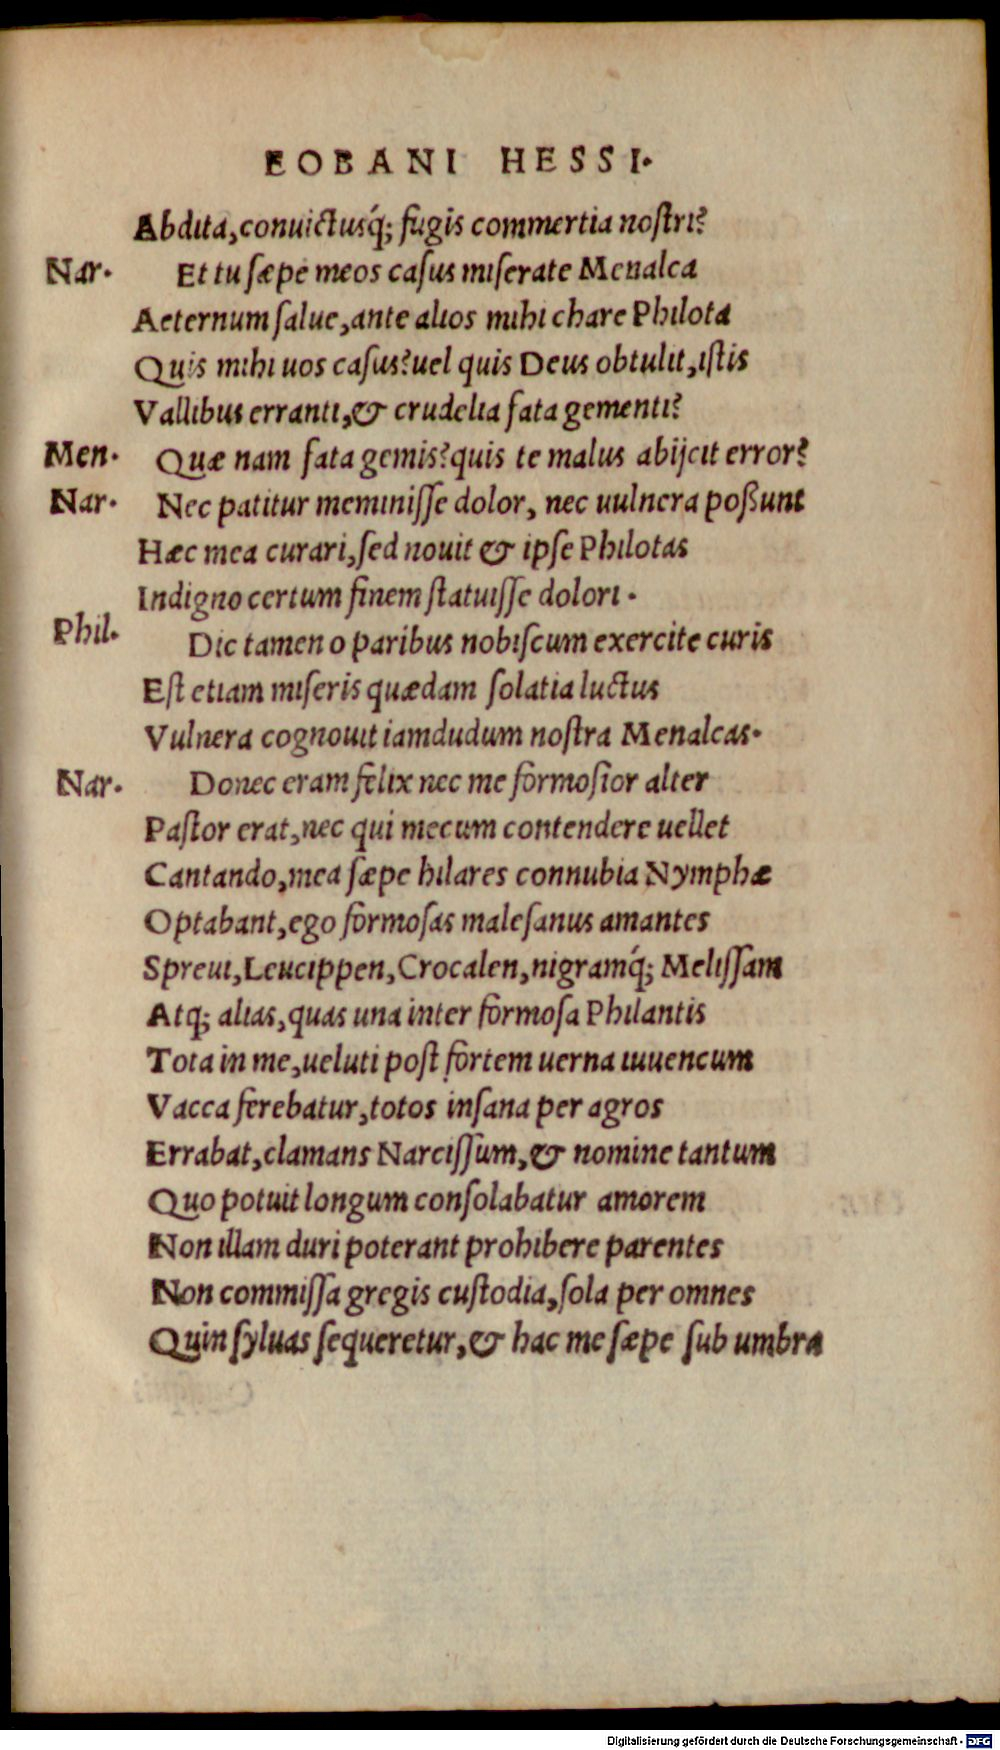 EOBANI HESSI.
Abdita, conuictusq́; fugis commertia noſtri?
Nar. Et tu ſæpe meos caſus miſerate Menalca
Aeternum ſalue, ante alios mihi chare Philota
Quis mihi uos caſus? uel quis Deus obtulit, iſtis
Vallibus erranti, & crudelia fata gementi?
Men. Quæ nam fata gemis? quis te malus abijcit error?
Nar. Nec patitur meminiſſe dolor, nec uulnera poßunt
Hæc mea curari, ſed nouit & ipſe Philotas
Indigno certum finem ſtatuiſſe dolori.
Phil. Dic tamen o paribus nobiſcum exercite curis
Eſt etiam miſeris quædam ſolatia luctus
Vulnera cognouit iamdudum noſtra Menalcas.
Nar. Donec eram felix nec me formoſior alter
Paſtor erat, nec qui mecum contendere uellet
Cantando, mea ſæpe hilares connubia Nymphæ
Optabant, ego formoſas maleſanus amantes
Spreui, Leucippen, Crocalen, nigramq́; Meliſſam
Atq; alias, quas una inter formoſa Philantis
Tota in me, ueluti poſt fortem uerna iuuencum
Vacca ferebatur, totos inſana per agros
Errabat, clamans Narciſſum, & nomine tantum
Quo potuit longum conſolabatur amorem
Non illam duri poterant prohibere parentes
Non commiſſa gregis cuſtodia, ſola per omnes
Quin ſyluas ſequeretur, & hac me ſæpe ſub umbra
Digitalisierung gefördert durch die Deutsche Forschungsgemeinschaft - DFG